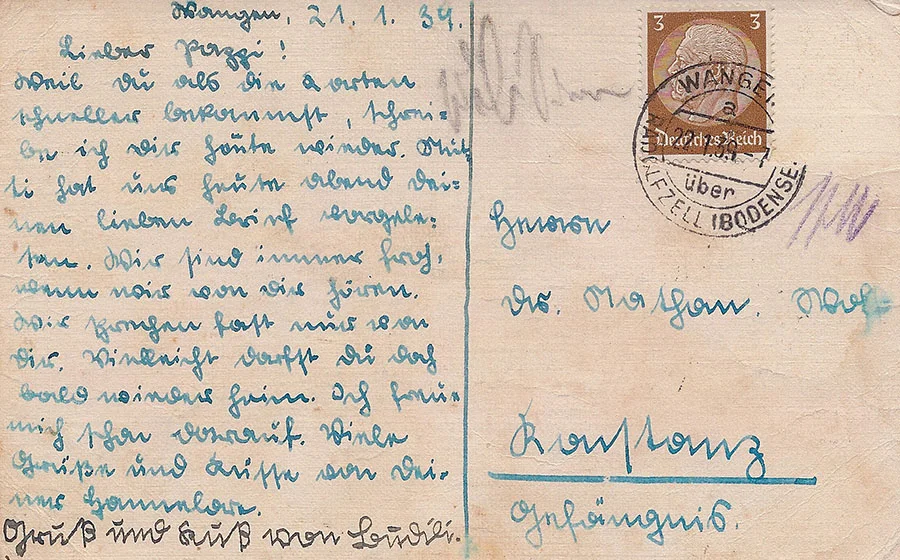 Wangen, 21. 1. 39.
Lieber Pappi!
Weil du als die Karten
schneller bekommst, schrei=
be ich dir heute wieder. Mut=
ti hat uns heute abend dei=
nen lieben Brief vorgele=
sen. Wir sind immer froh,
wenn wir von dir hören.
Wir sprechen fast nur von
dir. Vielleicht darfst du doch
bald wieder heim. Ich freue
mich schon darauf. Viele
Grüße und Küsse von dei=
ner Hannelore.
Gruß und Kuß von Ludili.
3 3
Deutsches Reich
WANGEN
a
über
RADOLFZELL (BODENSEE)
Herrn
Dr. Nathan Wolf
Konstanz
Gefängnis.